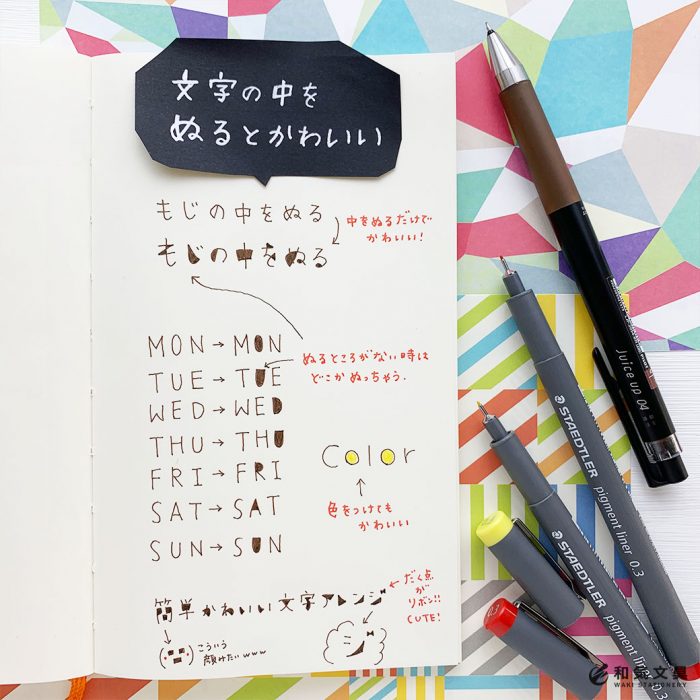 文字の中を
ぬるとかわいい
もじの中をぬる
中をぬるだけで
かわいい!
もじの中をぬる
MON→MON
ぬるところがない時は
どこかぬっちゃう.
TUE→TUE
WED→WED
THU→THU
FRI→FRI
SAT→SAT
SUN→SUN
Color
色をつけても
かわいい
簡単かわいい文字アレンジ
だく点
が
リボン!!
CUTE!
こういう
顔みたいwww
ジ
Juice up 04
STAEDTLER
pigment liner 0.3
STAEDTLER
pigment liner 0.3
0.3
和気文具
WAKI STATIONERY